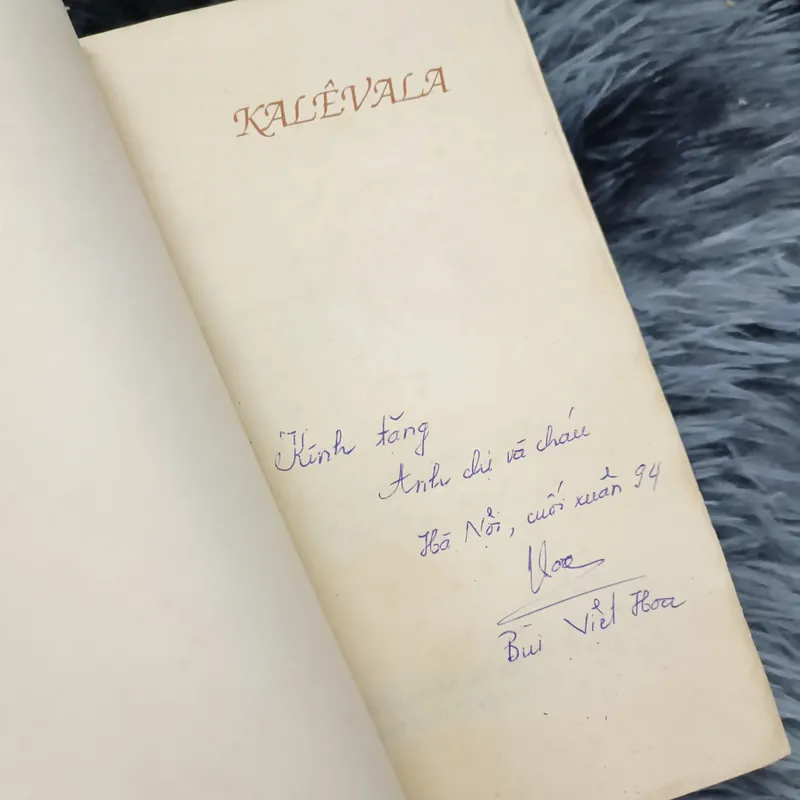 KALÊVALA
Kính tặng
Anh chị và cháu
Hà Nội, cuối xuân 94
Hoa
Bùi Việt Hoa